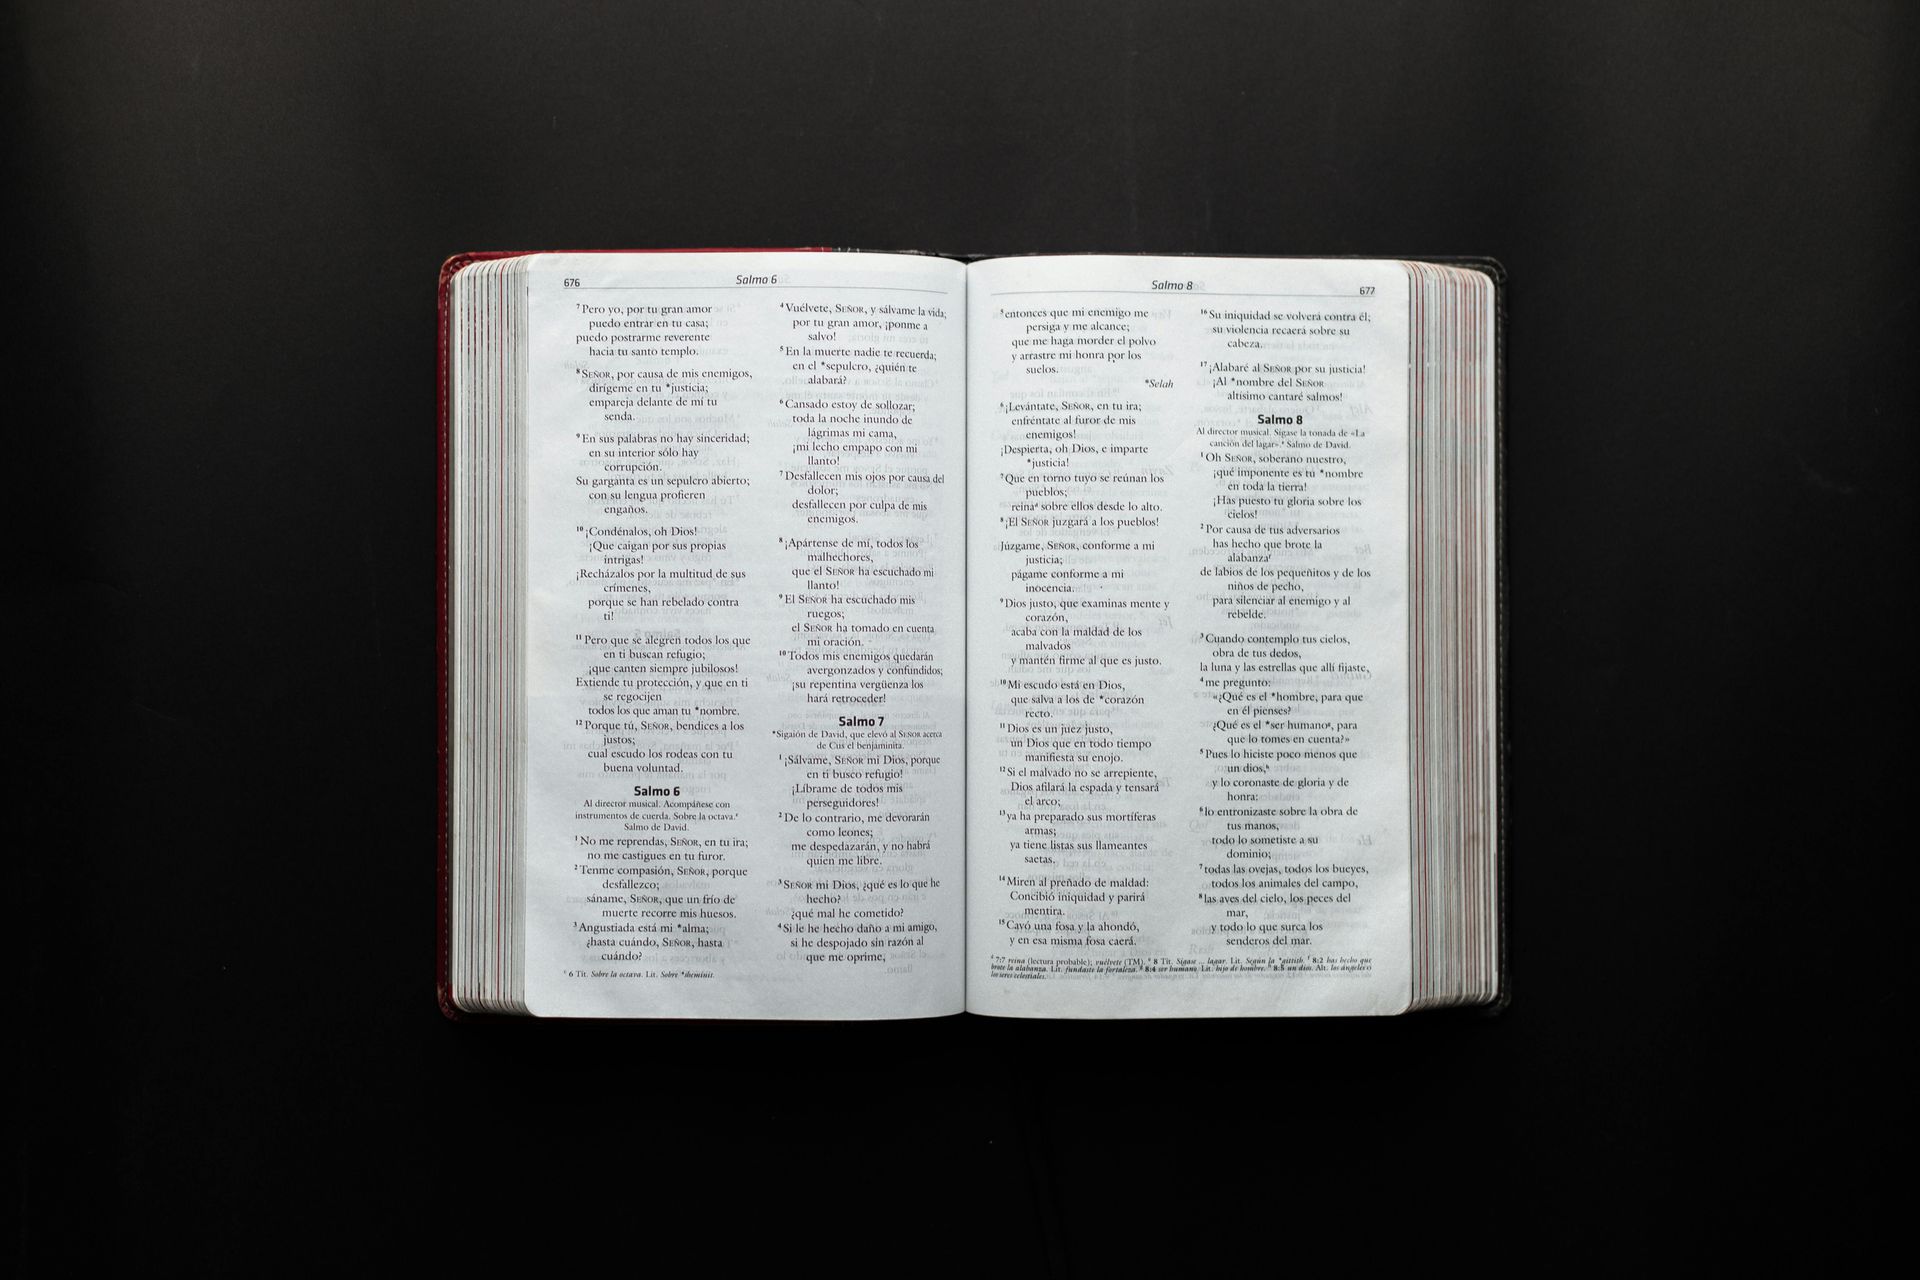 676
Salmo 6
⁷Pero yo, por tu gran amor
puedo entrar en tu casa;
puedo postrarme reverente
hacia tu santo templo.
⁸SEÑOR, por causa de mis enemigos,
dirígeme en tu *justicia;
empareja delante de mí tu
senda.
⁹En sus palabras no hay sinceridad;
en su interior sólo hay
corrupción.
Su garganta es un sepulcro abierto;
con su lengua profieren
engaños.
¹⁰¡Condénalos, oh Dios!
¡Que caigan por sus propias
intrigas!
¡Recházalos por la multitud de sus
crímenes,
porque se han rebelado contra
ti!
¹¹Pero que se alegren todos los que
en ti buscan refugio;
¡que canten siempre jubilosos!
Extiende tu protección, y que en ti
se regocijen
todos los que aman tu *nombre.
¹²Porque tú, SEÑOR, bendices a los
justos;
cual escudo los rodeas con tu
buena voluntad.
Salmo 6
Al director musical. Acompáñese con
instrumentos de cuerda. Sobre la octava.
Salmo de David.
¹No me reprendas, SEÑOR, en tu ira;
no me castigues en tu furor.
²Tenme compasión, SEÑOR, porque
desfallezco;
sáname, SEÑOR, que un frío de
muerte recorre mis huesos.
³Angustiada está mi *alma;
¿hasta cuándo, SEÑOR, hasta
cuándo?
6 Tit. Sobre la octava. Lit. Sobre *sheminit.
⁴Vuélvete, SEÑOR, y sálvame la vida;
por tu gran amor, ¡ponme a
salvo!
⁵En la muerte nadie te recuerda;
en el *sepulcro, ¿quién te
alabará?
⁶Cansado estoy de sollozar;
toda la noche inundo de
lágrimas mi cama,
¡mi lecho empapo con mi
llanto!
⁷Desfallecen mis ojos por causa del
dolor;
desfallecen por culpa de mis
enemigos.
⁸¡Apártense de mí, todos los
malhechores,
que el SEÑOR ha escuchado mi
llanto!
⁹El SEÑOR ha escuchado mis
ruegos;
el SEÑOR ha tomado en cuenta
mi oración.
¹⁰Todos mis enemigos quedarán
avergonzados y confundidos;
¡su repentina vergüenza los
hará retroceder!
Salmo 7
*Sigaión de David, que elevó al SEÑOR acerca
de Cus el benjaminita.
¹¡Sálvame, SEÑOR mi Dios, porque
en ti busco refugio!
¡Líbrame de todos mis
perseguidores!
²De lo contrario, me devorarán
como leones;
me despedazarán, y no habrá
quien me libre.
³SEÑOR mi Dios, ¿qué es lo que he
hecho?
¿qué mal he cometido?
⁴Si le he hecho daño a mi amigo,
si he despojado sin razón al
que me oprime,
Salmo 8
677
⁵entonces que mi enemigo me
persiga y me alcance;
que me haga morder el polvo
y arrastre mi honra por los
suelos.
*Selah
⁶¡Levántate, SEÑOR, en tu ira;
enfréntate al furor de mis
enemigos!
¡Despierta, oh Dios, e imparte
*justicia!
⁷Que en torno tuyo se reúnan los
pueblos;
reinaᵈ sobre ellos desde lo alto.
⁸¡El SEÑOR juzgará a los pueblos!
Júzgame, SEÑOR, conforme a mi
justicia;
págame conforme a mi
inocencia.
⁹Dios justo, que examinas mente y
corazón,
acaba con la maldad de los
malvados
y mantén firme al que es justo.
¹⁰Mi escudo está en Dios,
que salva a los de *corazón
recto.
¹¹Dios es un juez justo,
un Dios que en todo tiempo
manifiesta su enojo.
¹²Si el malvado no se arrepiente,
Dios afilará la espada y tensará
el arco;
¹³ya ha preparado sus mortíferas
armas;
ya tiene listas sus llameantes
saetas.
¹⁴Miren al preñado de maldad:
Concibió iniquidad y parirá
mentira.
¹⁵Cavó una fosa y la ahondó,
y en esa misma fosa caerá.
¹⁶Su iniquidad se volverá contra él;
su violencia recaerá sobre su
cabeza.
¹⁷¡Alabaré al SEÑOR por su justicia!
¡Al *nombre del SEÑOR
altísimo cantaré salmos!
Salmo 8
Al director musical. Sígase la tonada de «La
canción del lagar». Salmo de David.
¹Oh SEÑOR, soberano nuestro,
¡qué imponente es tu *nombre
en toda la tierra!
¡Has puesto tu gloria sobre los
cielos!
²Por causa de tus adversarios
has hecho que brote la
alabanzaᶠ
de labios de los pequeñitos y de los
niños de pecho,
para silenciar al enemigo y al
rebelde.
³Cuando contemplo tus cielos,
obra de tus dedos,
la luna y las estrellas que allí fijaste,
⁴me pregunto:
«¿Qué es el *hombre, para que
en él pienses?
¿Qué es el *ser humanoᵍ, para
que lo tomes en cuenta?»
⁵Pues lo hiciste poco menos que
un dios,ʰ
y lo coronaste de gloria y de
honra:
⁶lo entronizaste sobre la obra de
tus manos,
todo lo sometiste a su
dominio;
⁷todas las ovejas, todos los bueyes,
todos los animales del campo,
⁸las aves del cielo, los peces del
mar,
y todo lo que surca los
senderos del mar.
ᵈ 7:7 reina (lectura probable); vuélvete (TM). ᵉ 8 Tit. Sígase ... lagar. Lit. Según la *gittith. ᶠ 8:2 has hecho que
brote la alabanza. Lit. fundaste la fortaleza. ᵍ 8:4 ser humano. Lit. hijo de hombre. ʰ 8:5 un dios. Alt. los ángeles o
los seres celestiales.